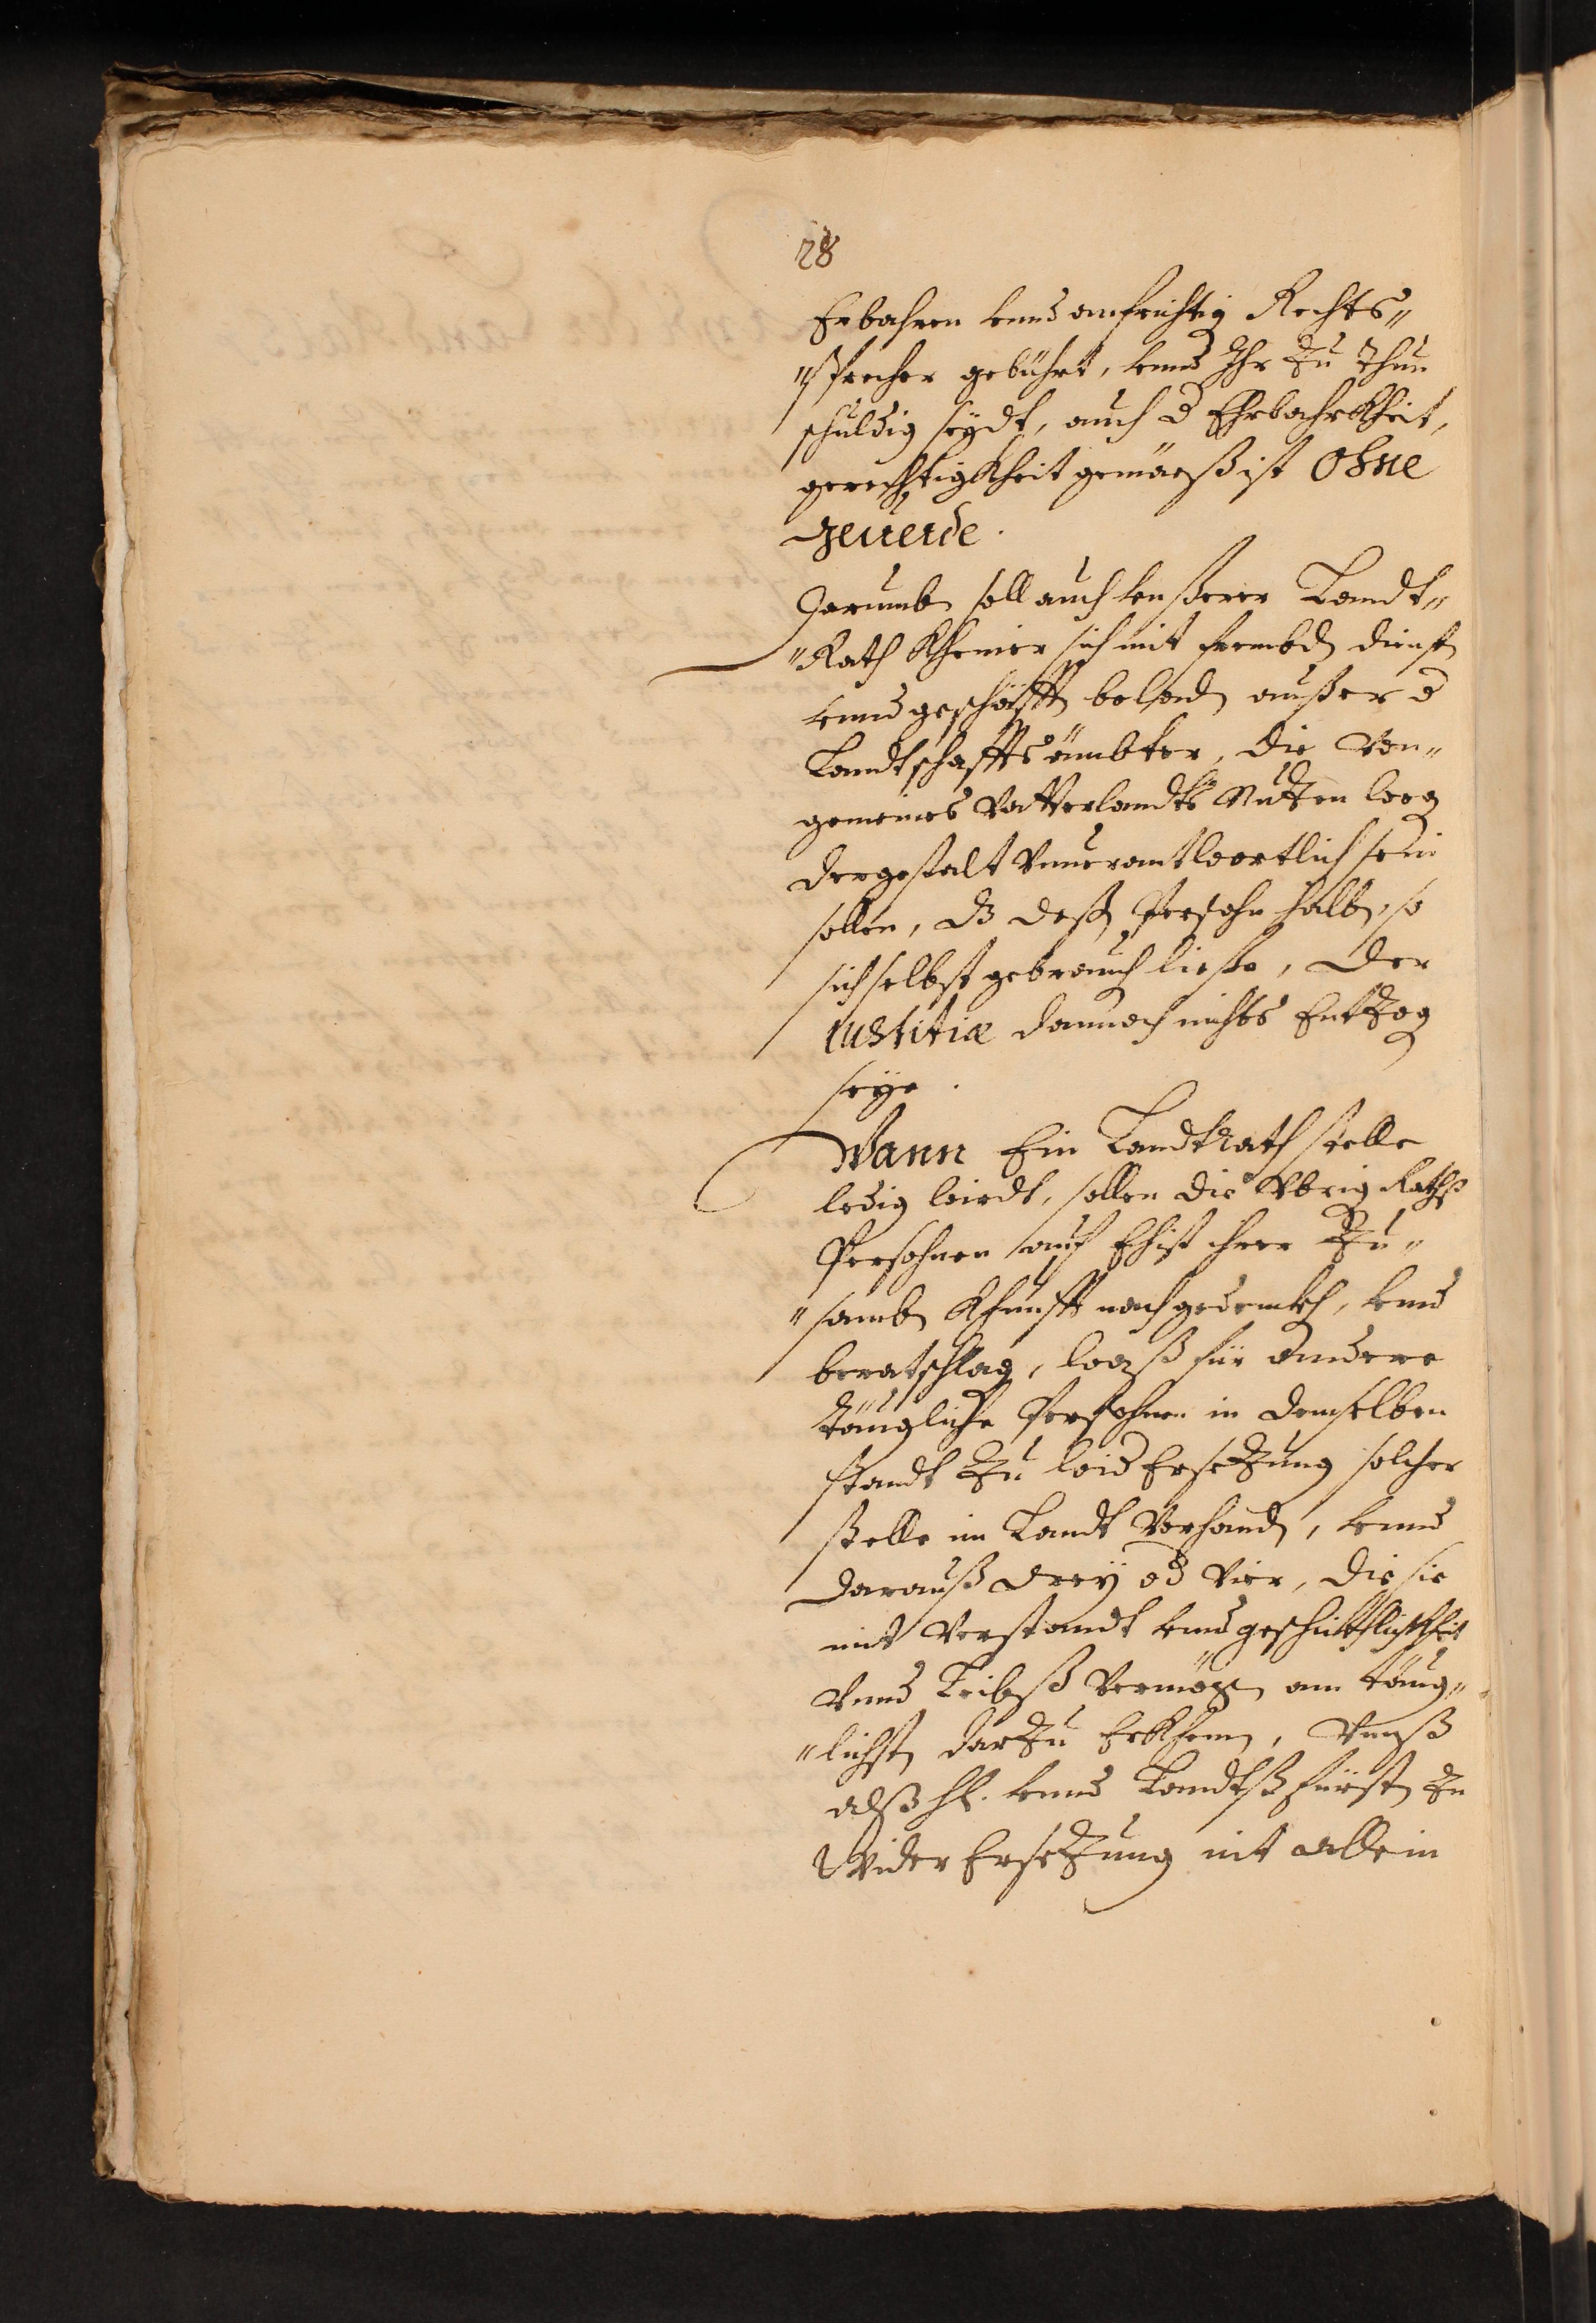 28
Erbahren vnnd aufrichtig Rechts„
„Sprecher gebührt, vnnd Ihr Zu Thun
schuldig seydt, auch d Ehrbahrkheit,
gerechtigkheit gemäeß ist Ohne
geuerde.
Darumb soll auch vnßerer Landt„
„Rath Kheiner sich mit frembdn dienstn
vnnd geschäfftn beladn außer d
Landtschaffts ämbter, die von„
gemeines Vatterlandts Nutzen weg
dergestalt vnuerantwortlich sein
sollen, dz deßn Persohn halbn, so
sich selbst gebrauch ließe, der
Iustitiæ dannoch nichts Entzog
seye.
Wann Ein Landtrath stelle
ledig wirdt, sollen die Vbrig Raths
Persohnen auf Ehist ihrer Zu„
„samb Khunfft nachgedenckh, vnnd
beratschlag, waß für andere
täugliche Persohnen in demselben
standt Zu wid Ersetzung solcher
stelle im Landt Vorhandn, vnnd
darauß drey od Vier, die sie
mit Verstandt vnnd geschickhlichkheit
Vnnd Leibß Vermög am täug„
„lichstn darzu Erkhenn, Vnnß
alß H. vnnd Landtßfürstn Zu
Wider Ersetzung nit allein